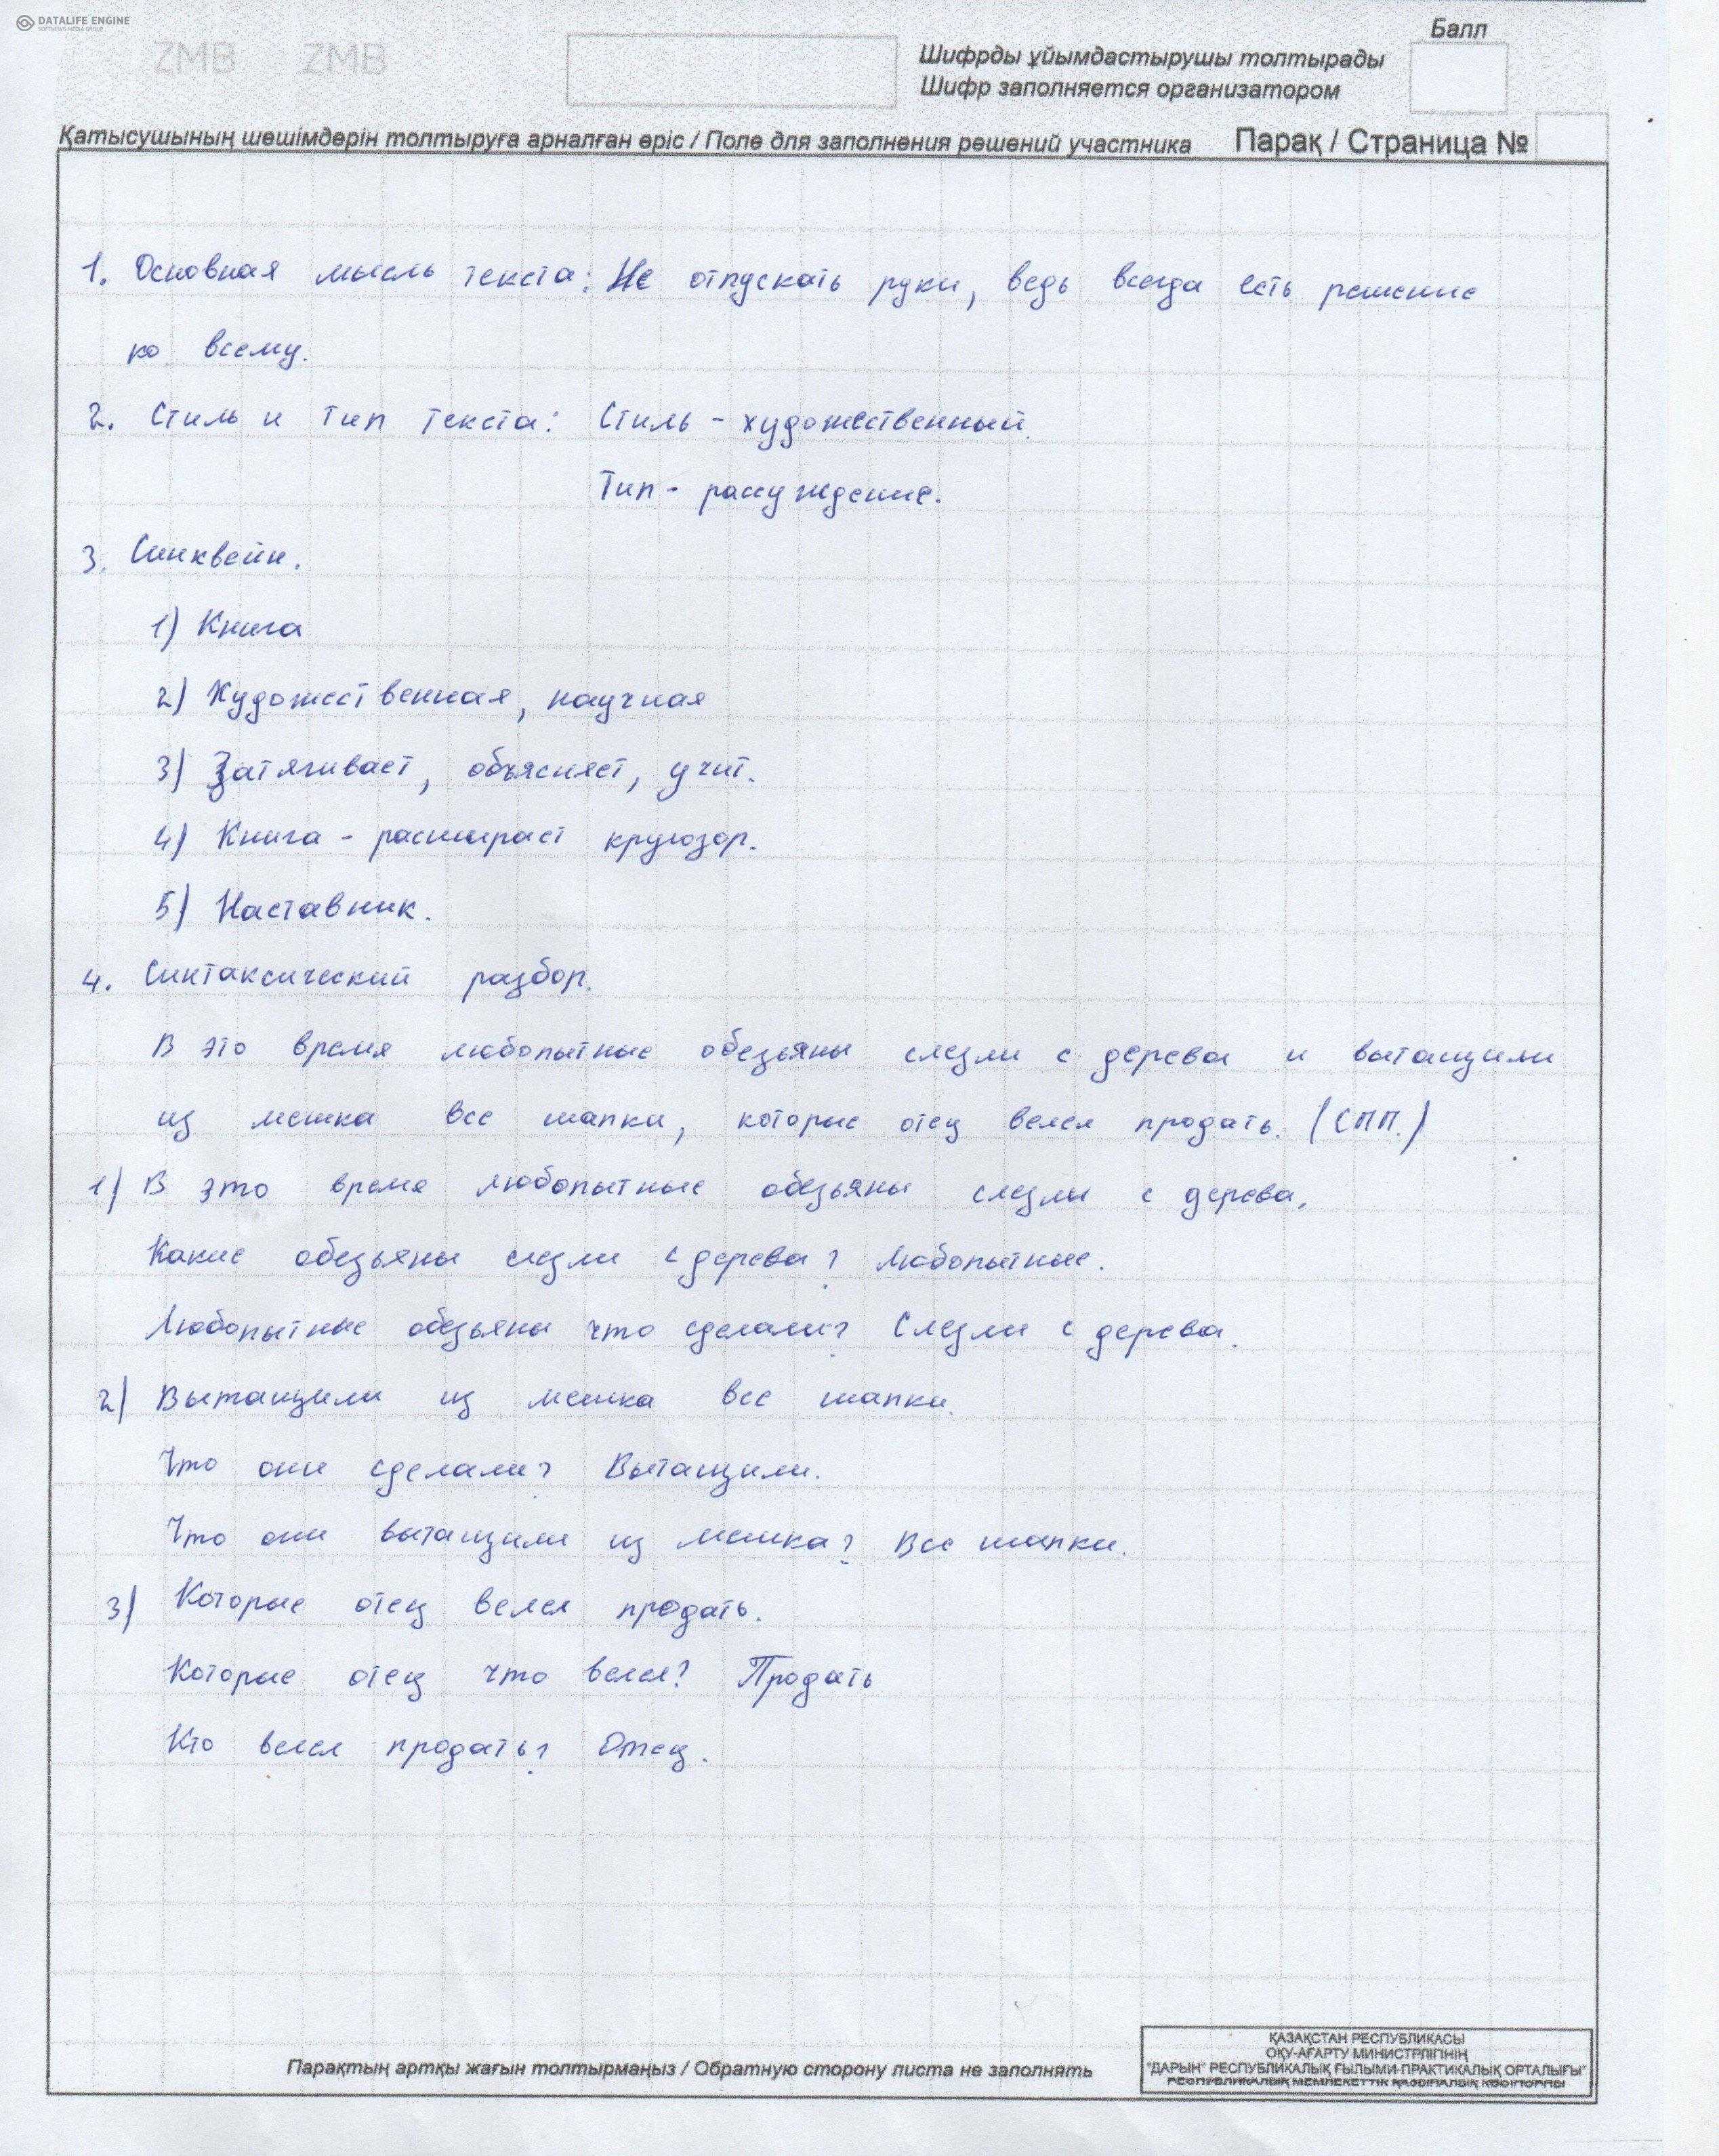 DATALIFE ENGINE
SOFTNEWS MEDIA GROUP
ZMB ZMB
Балл
Шифрды ұйымдастырушы толтырады
Шифр заполняется организатором
Қатысушының шешімдерін толтыруға арналған өріс / Поле для заполнения решений участника
Парақ / Страница №
1. Основная мысль текста: Не отпускать руки, ведь всегда есть решение
ко всему.
2. Стиль и тип текста: Стиль - художественный.
Тип - рассуждение.
3. Синквейн.
1) Книга
2) Художественная, научная
3) Затягивает, объясняет, учит.
4) Книга - расширяет кругозор.
5) Наставник.
4. Синтаксический разбор.
В это время любопытные обезьяны слезли с дерева и вытащили
из мешка все шапки, которые отец велел продать. (СПП.)
1) В это время любопытные обезьяны слезлы с дерева.
Какие обезьяны слезли с дерева? Любопытные.
Любопытные обезьяны что сделали? Слезли с дерева.
2) Вытащили из мешка все шапки.
Что они сделали? Вытащили.
Что они вытащили из мешка? Все шапки.
3) Которые отец велел продать.
Которые отец что велел? Продать
Кто велел продать? Отец.
Парақтың артқы жағын толтырмаңыз / Обратную сторону листа не заполнять
ҚАЗАҚСТАН РЕСПУБЛИКАСЫ
ОҚУ-АҒАРТУ МИНИСТРЛІГІНІҢ
"ДАРЫН" РЕСПУБЛИКАЛЫҚ ҒЫЛЫМИ-ПРАКТИКАЛЫҚ ОРТАЛЫҒЫ"
РЕСПУБЛИКАЛЫҚ МЕМЛЕКЕТТІК ҚАЗЫНАЛЫҚ КӘСІПОРНЫ